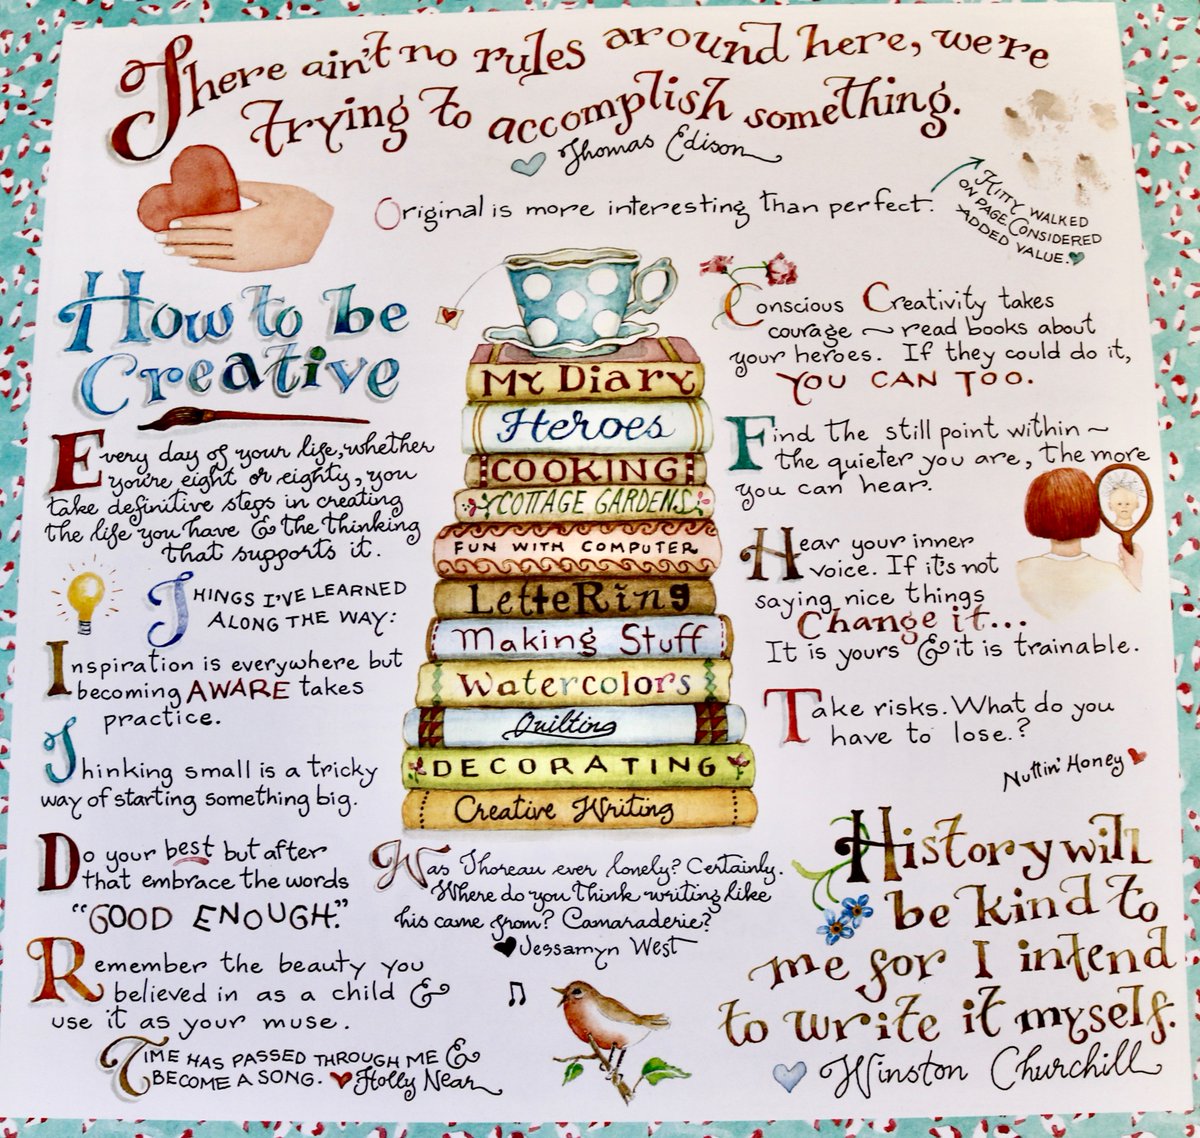 There ain't no rules around here, we're
trying to accomplish something.
Thomas Edison
Original is more interesting than perfect.
Kitty walked
on page. Considered
added value.
How to be
Creative
Every day of your life, whether
you're eight or eighty, you
take definitive steps in creating
the life you have & the thinking
that supports it.
Things I've learned
along the way:
Inspiration is everywhere but
becoming AWARE takes
practice.
Thinking small is a tricky
way of starting something big.
Do your best but after
that embrace the words
"GOOD ENOUGH."
Remember the beauty you
believed in as a child &
use it as your muse.
Time has passed through me &
become a song. Holly Near
My Diary
Heroes
COOKING
COTTAGE GARDENS
FUN WITH COMPUTER
LetteRing
Making Stuff
Watercolors
Quilting
DECORATING
Creative Writing
Was Thoreau ever lonely? Certainly.
Where do you think writing like
his came from? Camaraderie?
Jessamyn West
Conscious Creativity takes
courage ~ read books about
your heroes. If they could do it,
YOU CAN TOO.
Find the still point within ~
the quieter you are, the more
you can hear.
Hear your inner
voice. If it's not
saying nice things
Change it...
It is yours & it is trainable.
Take risks. What do you
have to lose.?
Nuttin' Honey
History will
be kind to
me for I intend
to write it myself.
Winston Churchill